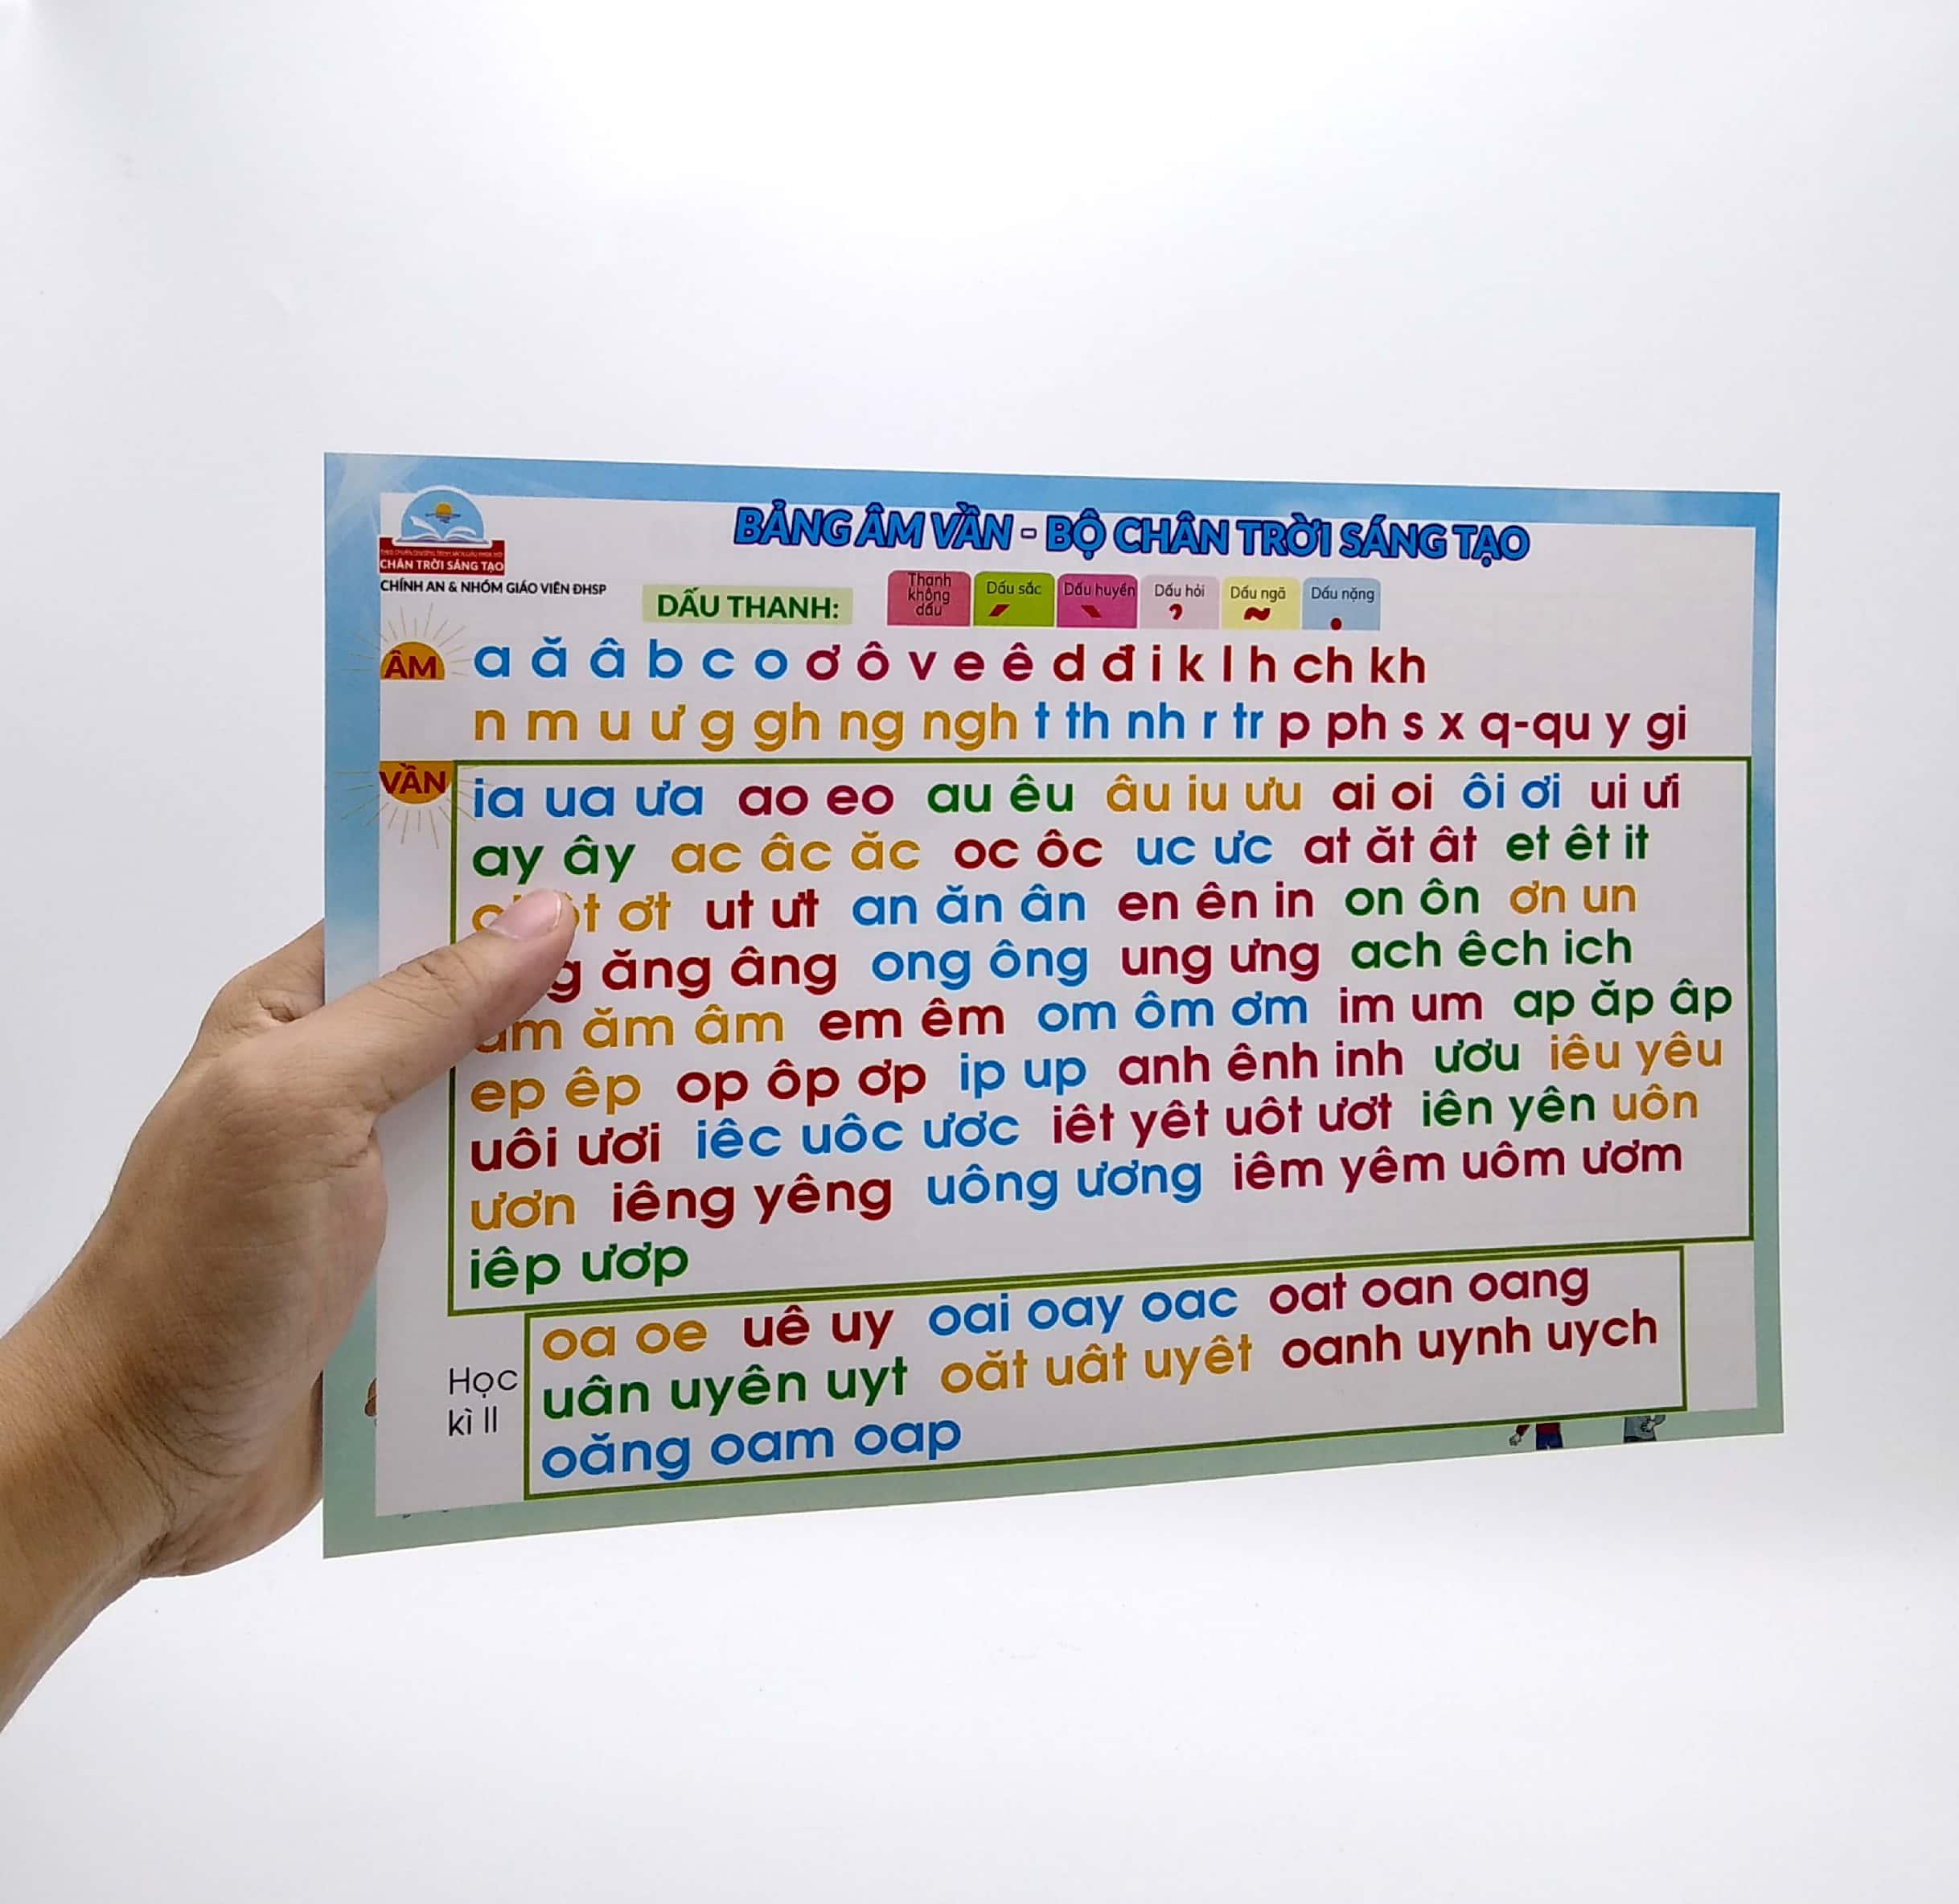 BẢNG ÂM VẦN - BỘ CHÂN TRỜI SÁNG TẠO
CHÂN TRỜI SÁNG TẠO
CHÍNH AN & NHÓM GIÁO VIÊN ĐHSP
DẤU THANH:
Thanh không dấu
Dấu sắc
Dấu huyền
Dấu hỏi
Dấu ngã
Dấu nặng
ÂM
a ă â b c o ơ ô v e ê d đ i k l h ch kh
n m u ư g gh ng ngh t th nh r tr p ph s x q-qu y gi
VẦN
ia ua ưa ao eo au êu âu iu ưu ai oi ôi ơi ui ưi
ay ây ac âc ăc oc ôc uc ưc at ăt ât et êt it
ơt ut ưt an ăn ân en ên in on ôn ơn un
ăng âng ong ông ung ưng ach êch ich
am ăm âm em êm om ôm ơm im um ap ăp âp
ep êp op ôp ơp ip up anh ênh inh ươu iêu yêu
uôi ươi iêc uôc ươc iêt yêt uôt ươt iên yên uôn
ươn iêng yêng uông ương iêm yêm uôm ươm
iêp ươp
Học
kì II
oa oe uê uy oai oay oac oat oan oang
uân uyên uyt oăt uât uyêt oanh uynh uych
oăng oam oap